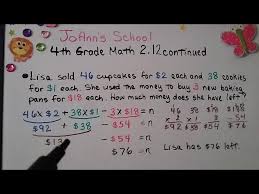 JoAnn's School
4th Grade Math 2.12 continued
Lisa sold 46 cupcakes for $2 each and 38 cookies
for $1 each. She used the money to buy 3 new baking
pans for $18 each. How much money does she have left?
46 X $2 + 38 X $1 - 3 X $18 = n
$92 + $38 - $54 = n
- $54 = n
$76 = n
Lisa has $76 left.